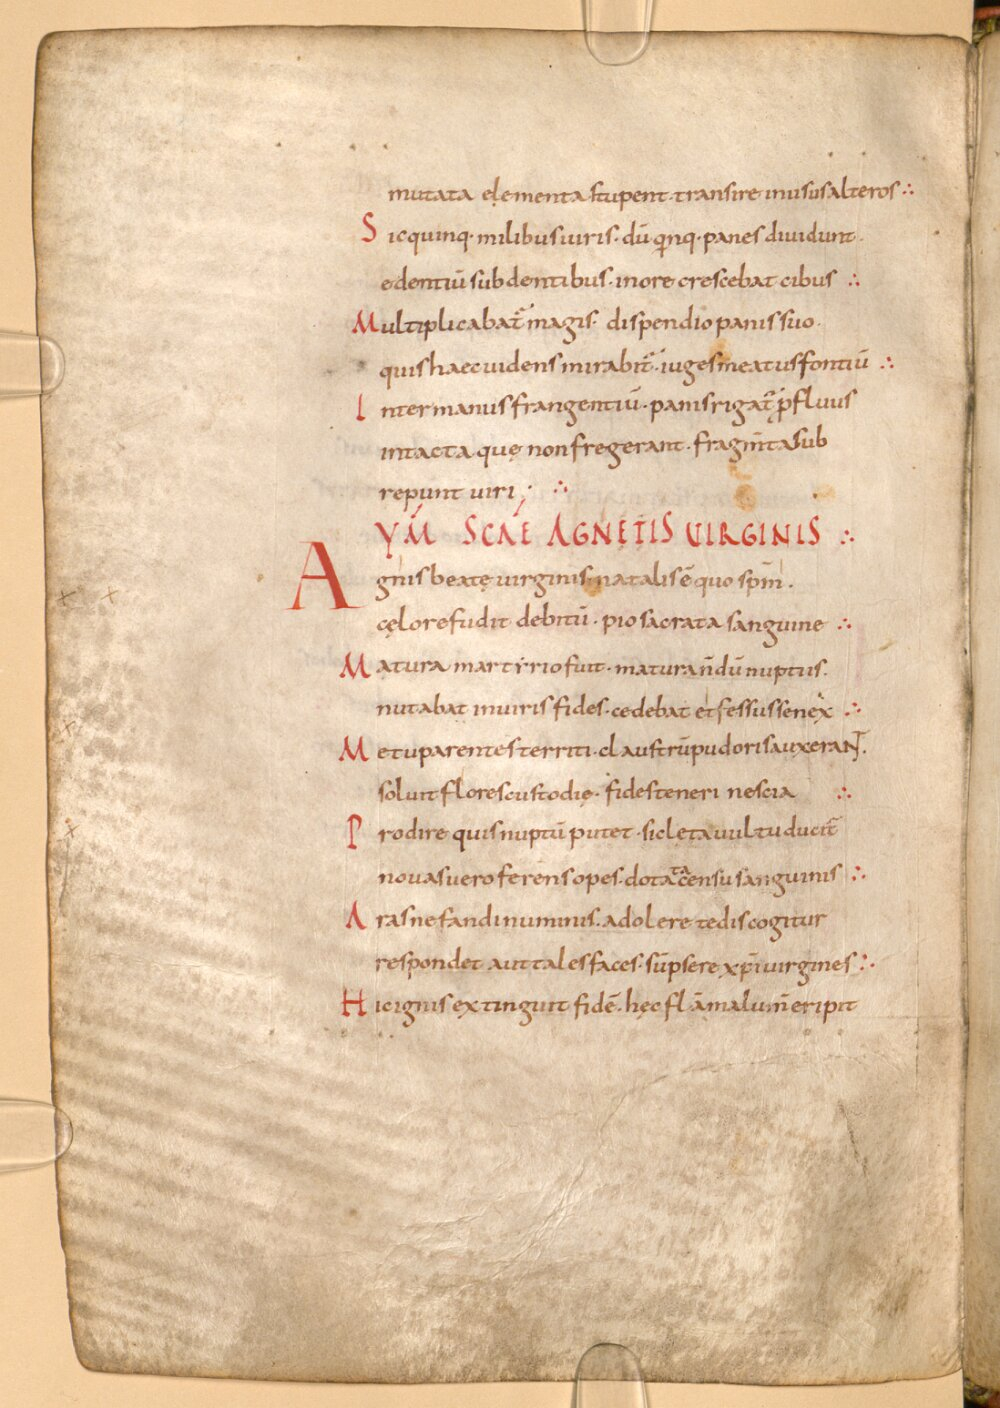 mutata elementa stupent · transire in usus alteros ∴
Sic quinq· milibus uiris · dū qinq· panes diuidunt ·
edentiū sub dentibus · in ore crescebat cibus ∴
Multiplicabat̄ magis · dispendio panis suo ·
quis haec uidens mirabit̄ · iuges meatus fontiū ∴
Inter manus frangentiū · panis rigat̄ p̄fluus
intacta quę non fregerant · fragm̄ta sub
repunt uiri ; ∴
YḾ SCAE AGNETIS UIRGINIS ∴
Agnis beatę uirginis · natalis ē quo spm̄ ·
cęlo refudit debitū · pio sacrata sanguine ∴
Matura martyrio fuit · matura n̄dū nuptiis ·
nutabat in uiris fides · cedebat et fessus senex ∴
Metu parentes territi · claustrū pudoris auxeraNT ·
soluit flores custodię · fides teneri nescia ∴
Prodire quis nuptū putet · sic lęta uultu ducit̄
nouas uero ferens opes · dotata censu sanguinis ∴
Aras nefandi numinis · adolere tedis cogitur
respondet aut tales faces · sūpsere xp̄i uirgines ∴
Hic ignis extinguit fidē · hęc flāma lum̄ eripit